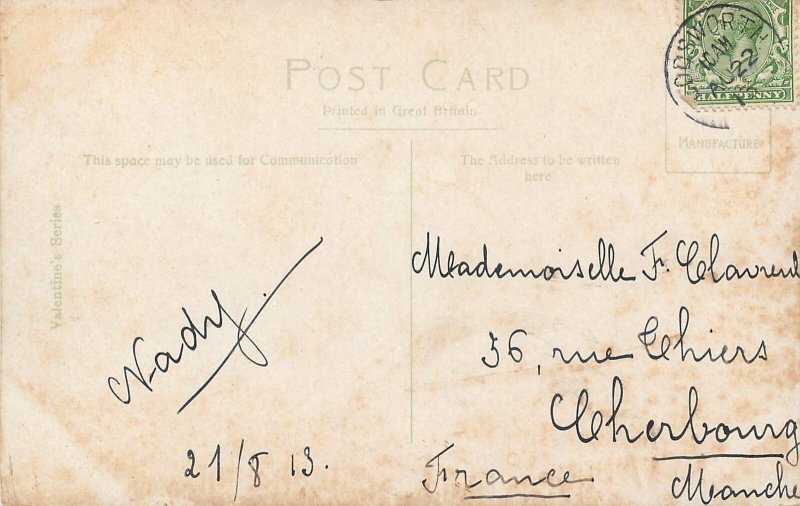 POST CARD
Printed in Great Britain
This space may be used for Communication
The Address to be written
here.
MANUFACTURE
HALFPENNY
10 AM
AU 22
13
Valentine's Series
Nady.
21/8 13.
Mademoiselle F.
36, rue Thiers
Cherbourg
Manche
France